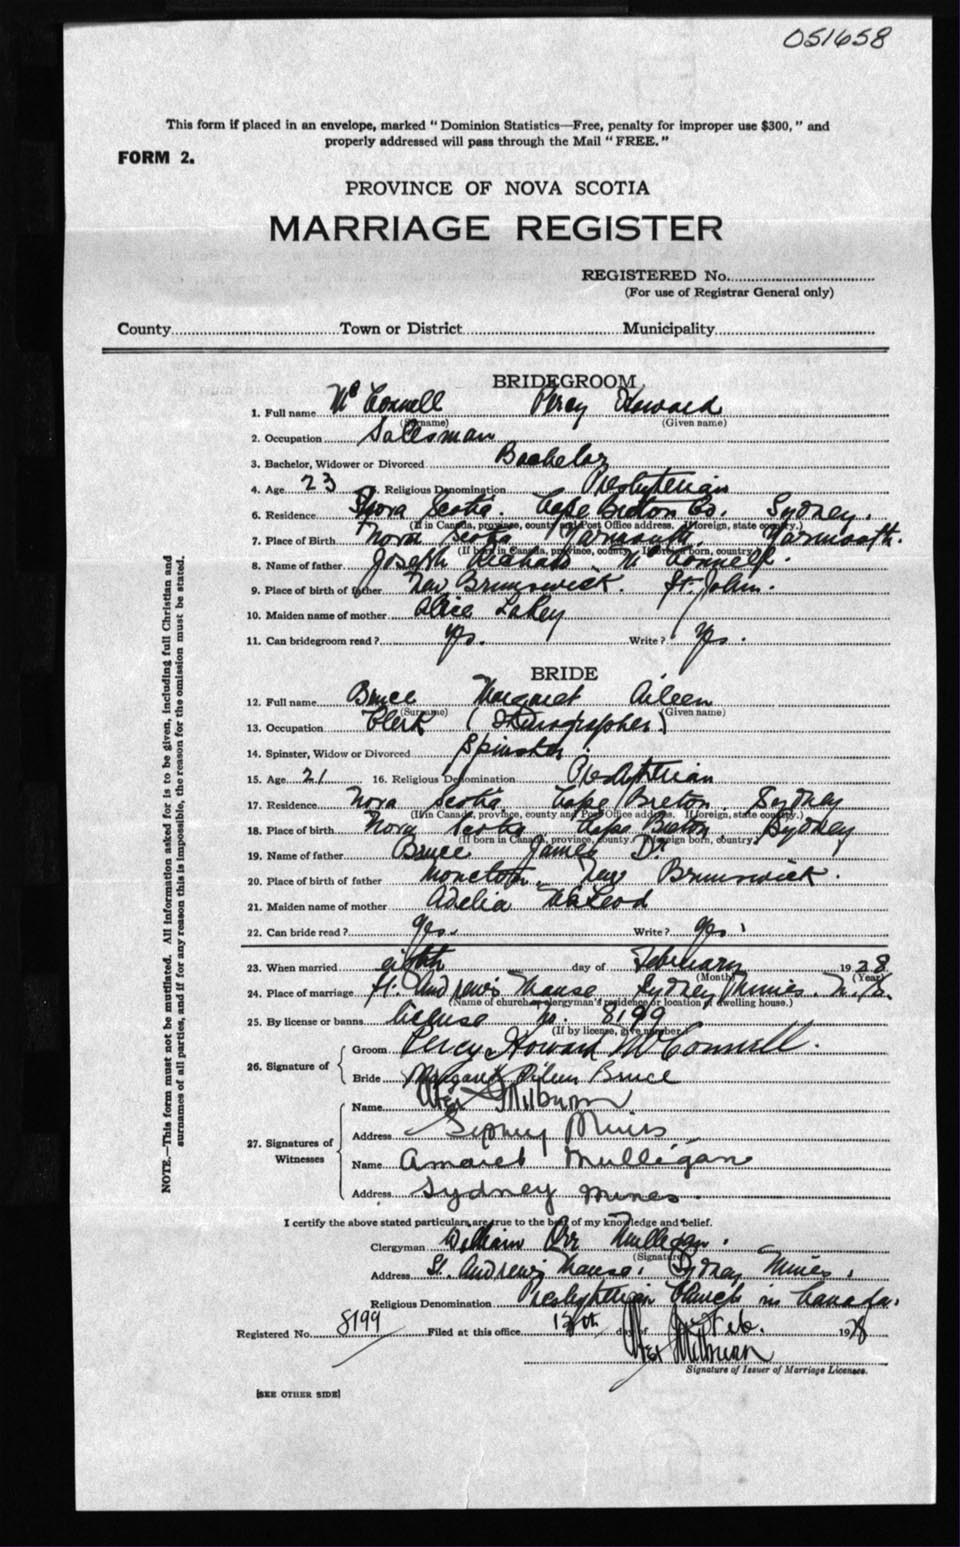 051658
This form if placed in an envelope, marked "Dominion Statistics—Free, penalty for improper use $300," and
properly addressed will pass through the Mail "FREE."
FORM 2.
PROVINCE OF NOVA SCOTIA
MARRIAGE REGISTER
REGISTERED No.
(For use of Registrar General only)
County Town or District Municipality
BRIDEGROOM
1. Full name McConnell Percy Howard
(Surname) (Given name)
2. Occupation Salesman
3. Bachelor, Widower or Divorced Bachelor
4. Age 23 5. Religious Denomination Presbyterian
6. Residence Nova Scotia. Cape Breton Co. Sydney.
(If in Canada, province, county and Post Office address. If foreign, state country.)
7. Place of Birth Nova Scotia Yarmouth. Yarmouth.
(If born in Canada, province, county. If foreign born, country)
8. Name of father Joseph Richard McConnell.
9. Place of birth of father New Brunswick. St. John.
10. Maiden name of mother Alice Lahey
11. Can bridegroom read? Yes. Write? Yes.
BRIDE
12. Full name Bruce Margaret Aileen
(Surname) (Given name)
13. Occupation Clerk (Stenographer)
14. Spinster, Widow or Divorced Spinster.
15. Age 21 16. Religious Denomination Presbyterian
17. Residence Nova Scotia Cape Breton Sydney
(If in Canada, province, county and Post Office address. If foreign, state country.)
18. Place of birth Nova Scotia Cape Breton Sydney
(If born in Canada, province, county. If foreign born, country)
19. Name of father Bruce James Dr.
20. Place of birth of father Moncton. New Brunswick.
21. Maiden name of mother Adelia McLeod
22. Can bride read? Yes. Write? Yes.
23. When married eighth day of February 1928
(Month) (Year)
24. Place of marriage St. Andrew's Manse Sydney Mines. N.S.
(Name of church or clergyman's residence or location of dwelling house.)
25. By license or banns license No. 8199
(If by license, give number)
26. Signature of Groom Percy Howard McConnell.
Bride Margaret Aileen Bruce
27. Signatures of Witnesses Name Alex Milburn
Address Sydney Mines
Name Amaret Mulligan
Address Sydney Mines.
I certify the above stated particulars are true to the best of my knowledge and belief.
Clergyman William Orr Mulligan.
(Signature)
Address St. Andrew's Manse, Sydney Mines.
Religious Denomination Presbyterian Church in Canada.
Registered No. 8199 Filed at this office 13th day of Feb. 1928
Alex Milburn
Signature of Issuer of Marriage Licenses.
[SEE OTHER SIDE]
NOTE.—This form must not be mutilated. All information asked for is to be given, including full Christian and
surnames of all parties, and if for any reason this is impossible, the reason for the omission must be stated.